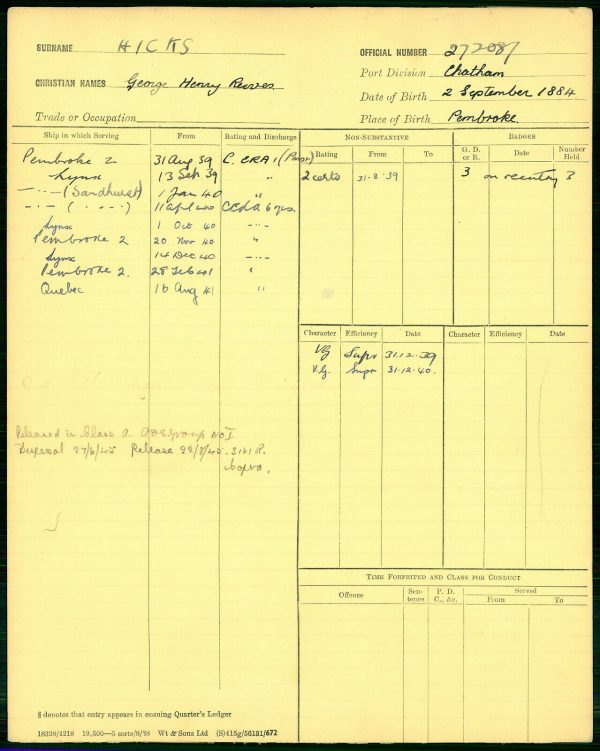 SURNAME HICKS
OFFICIAL NUMBER 272087
CHRISTIAN NAMES George Henry Reeves
Port Division Chatham
Date of Birth 2 September 1884
Trade or Occupation
Place of Birth Pembroke
Ship in which Serving From Rating and Discharge
Pembroke 2 31 Aug 39 C. ERA 1 (Pensr)
Lynx 13 Sep 39 "
—··— (Sandhurst) 1 Jan 40 "
—·— ( · —·· ) 11 Apl 40 CERA
Lynx 1 Oct 40 —··—
Pembroke 2 20 Nov 40 "
Lynx 14 Dec 40 —··—
Pembroke 2. 28 Feb 41 "
Quebec 16 Aug 41 "
Released in Class A. Age Group No 1
Dispersal 27/6/45 Release 22/8/45.
NON-SUBSTANTIVE
Rating From To
2 certs 31·8·39
BADGES
G. D. or R. Date Number Held
3 on reentry 3
Character Efficiency Date Character Efficiency Date
VG Supr 31·12·39
V.G. Supr 31-12-40.
TIME FORFEITED AND CLASS FOR CONDUCT
Offence Sen-tence P. D. C., &c. Served
From To
§ denotes that entry appears in ensuing Quarter's Ledger
18328/4218 19,500—5 sorts/8/38 Wt & Sons Ltd (S)415g/56181/672